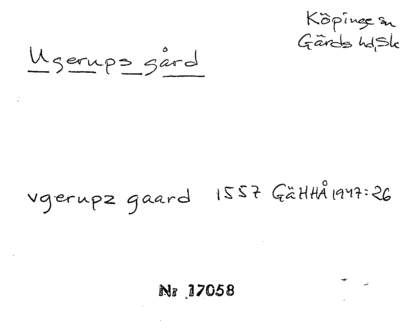 Köpinge sn
Gärds hd, Sk
Ugerups gård
vgerupz gaard 1557 GäHHÅ 1947:26
Nr 17058